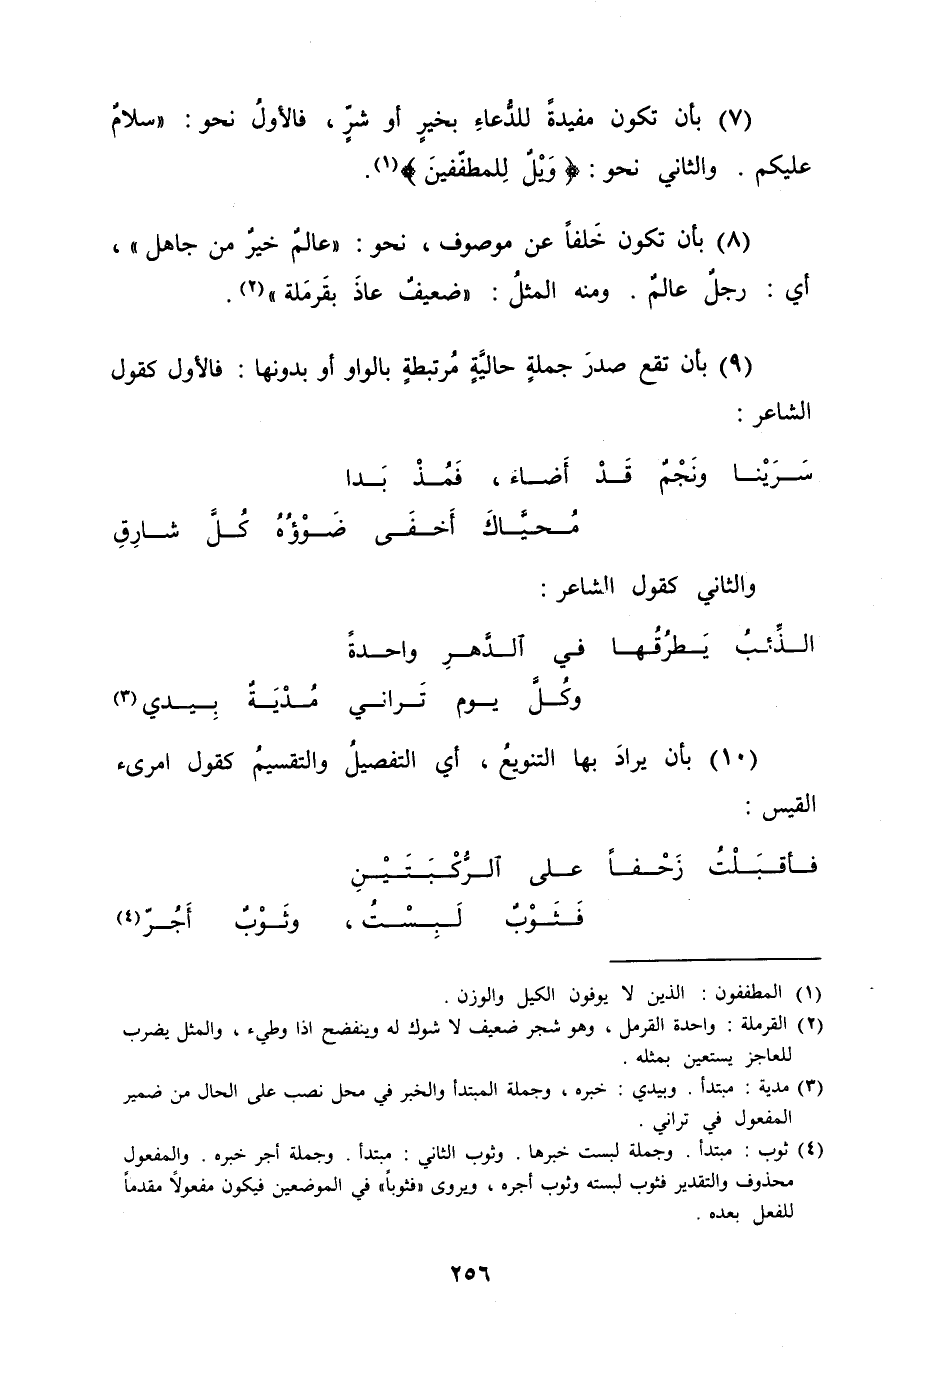 (٧) بأن تكون مفيدةً للدُّعاءِ بخيرٍ أو شرٍّ ، فالأولُ نحو : «سلامٌ
عليكم . والثاني نحو : ﴿ وَيْلٌ لِلمطفّفينَ ﴾(١).
(٨) بأن تكون خَلفاً عن موصوف ، نحو : «عالمٌ خيرٌ من جاهل» ،
أي : رجلٌ عالمٌ . ومنه المثلُ : «ضعيفٌ عاذَ بقَرمَلة»(٢) .
(٩) بأن تقع صدرَ جملةٍ حاليَّةٍ مُرتبطةٍ بالواو أو بدونها : فالأول كقول
الشاعر :
سَرَيْنا ونَجْمٌ قَدْ أَضاءَ ، فَمُذْ بَدا
مُحيَّاكَ أَخفَى ضَوْؤُهُ كُلَّ شارِقِ
والثاني كقول الشاعر :
الذِّئبُ يَطرُقُها في ٱلدَّهرِ واحدةً
وكُلَّ يوم تَراني مُدْيَةٌ بِيدي(٣)
(١٠) بأن يرادَ بها التنويعُ ، أي التفصيلُ والتقسيمُ كقول امرىء
القيس :
فأقبَلْتُ زَحْفاً على ٱلرُّكْبَتَيْنِ
فَثَوْبٌ لَبِسْتُ ، وثَوْبٌ أَجُرّ(٤)
(١) المطففون : الذين لا يوفون الكيل والوزن .
(٢) القرملة : واحدة القرمل ، وهو شجر ضعيف لا شوك له وينفضح اذا وطيء ، والمثل يضرب
للعاجز يستعين بمثله .
(٣) مدية : مبتدأ . وبيدي : خبره ، وجملة المبتدأ والخبر في محل نصب على الحال من ضمير
المفعول في تراني .
(٤) ثوب : مبتدأ . وجملة لبست خبرها . وثوب الثاني : مبتدأ . وجملة أجر خبره . والمفعول
محذوف والتقدير فثوب لبسته وثوب أجره ، ويروى «فثوباً» في الموضعين فيكون مفعولاً مقدماً
للفعل بعده .
٢٥٦